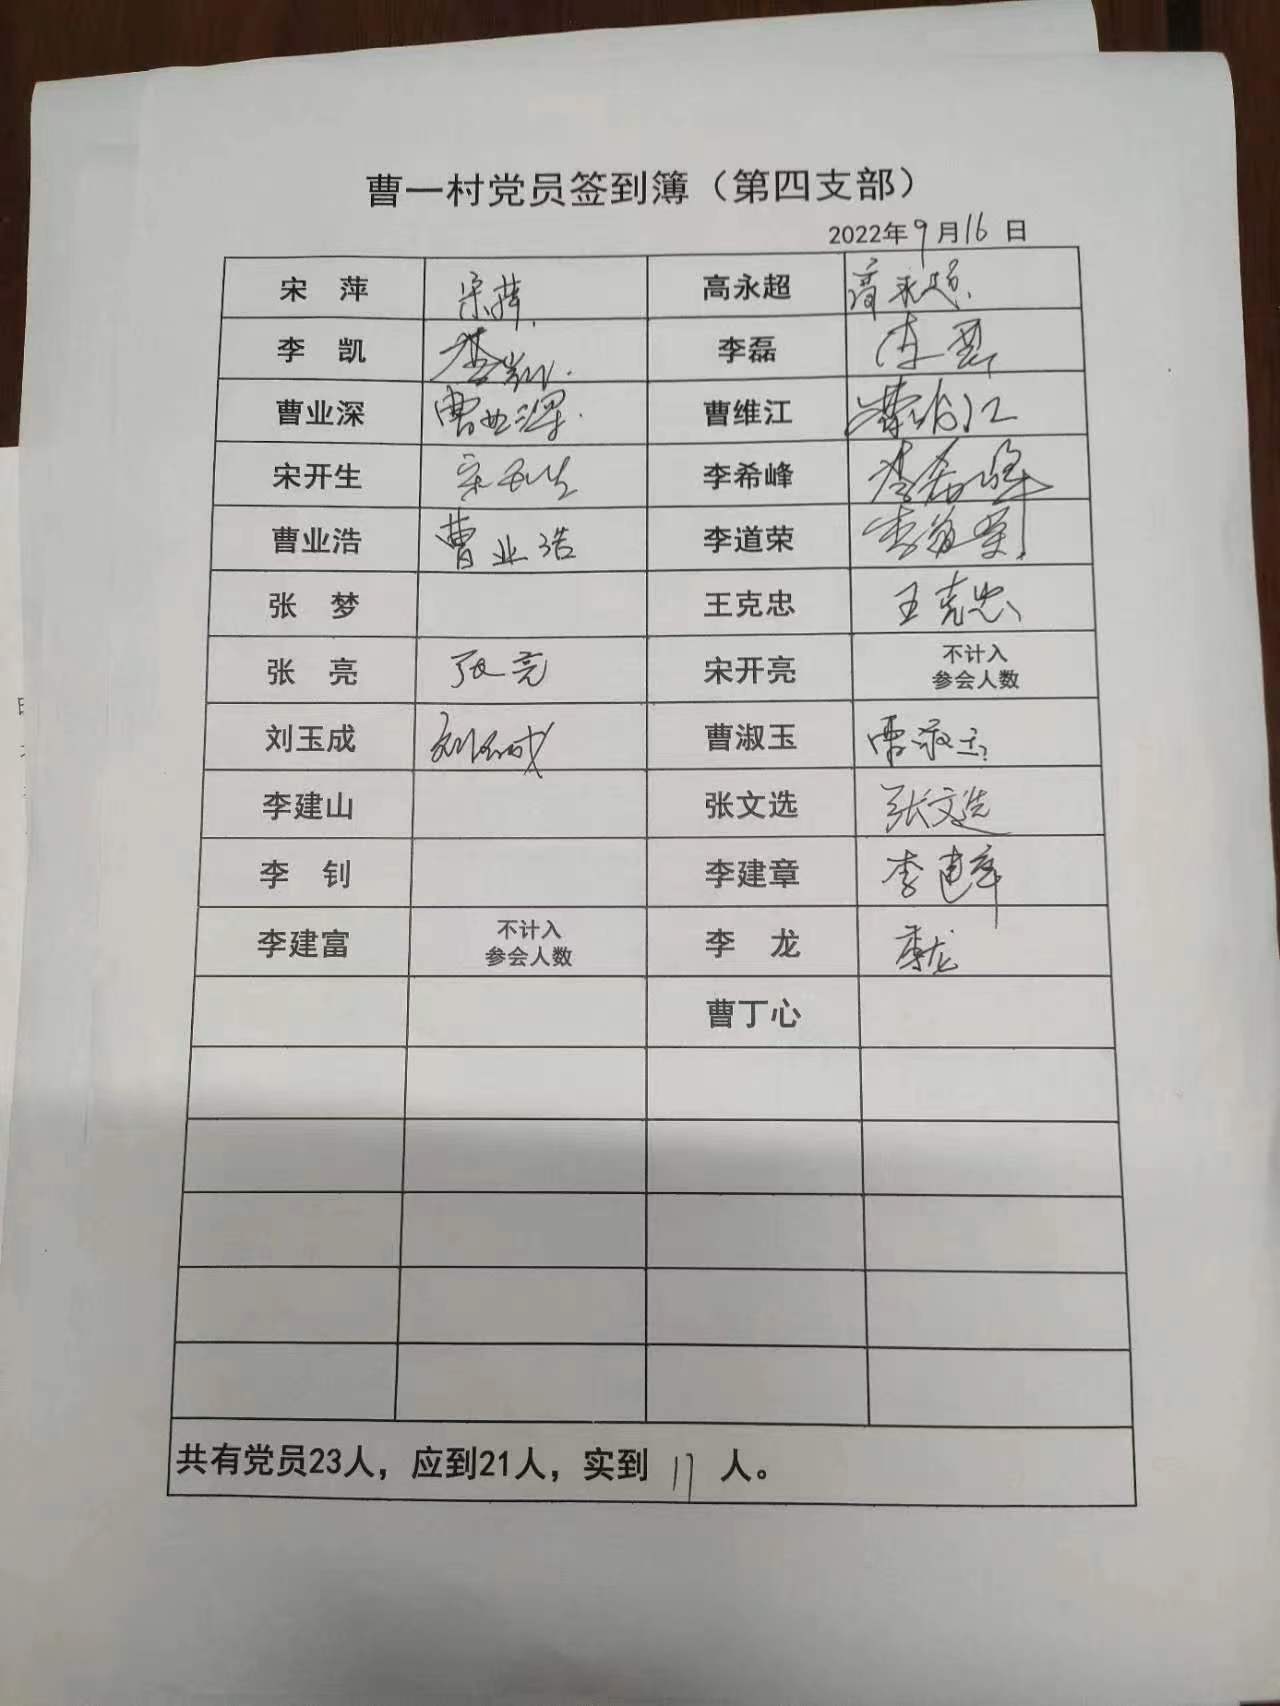 曹一村党员签到簿（第四支部）
2022年9月16日
宋 萍 宋萍 高永超 高永超
李 凯 李凯 李磊 李磊
曹业深 曹业深 曹维江 曹维江
宋开生 宋开生 李希峰 李希峰
曹业浩 曹业浩 李道荣 李道荣
张 梦 王克忠 王克忠
张 亮 张亮 宋开亮 不计入
参会人数
刘玉成 刘玉成 曹淑玉 曹淑玉
李建山 张文选 张文选
李 钊 李建章 李建章
李建富 不计入
参会人数 李 龙 李龙
曹丁心
共有党员23人，应到21人，实到 17 人。